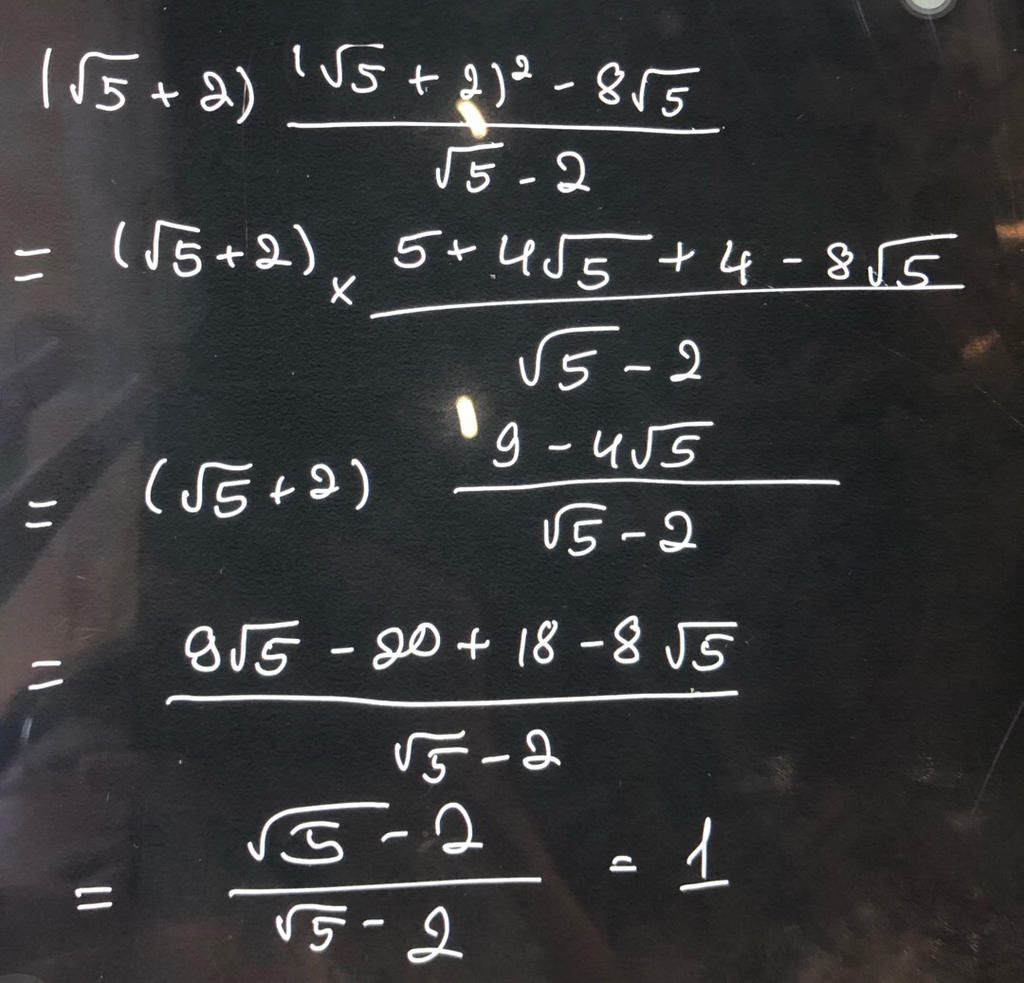 (√5 + 2) ((√5 + 2)² - 8√5)/(√5 - 2)
= (√5 + 2) × (5 + 4√5 + 4 - 8√5)/(√5 - 2)
= (√5 + 2) (9 - 4√5)/(√5 - 2)
= (9√5 - 20 + 18 - 8√5)/(√5 - 2)
= (√5 - 2)/(√5 - 2) = 1